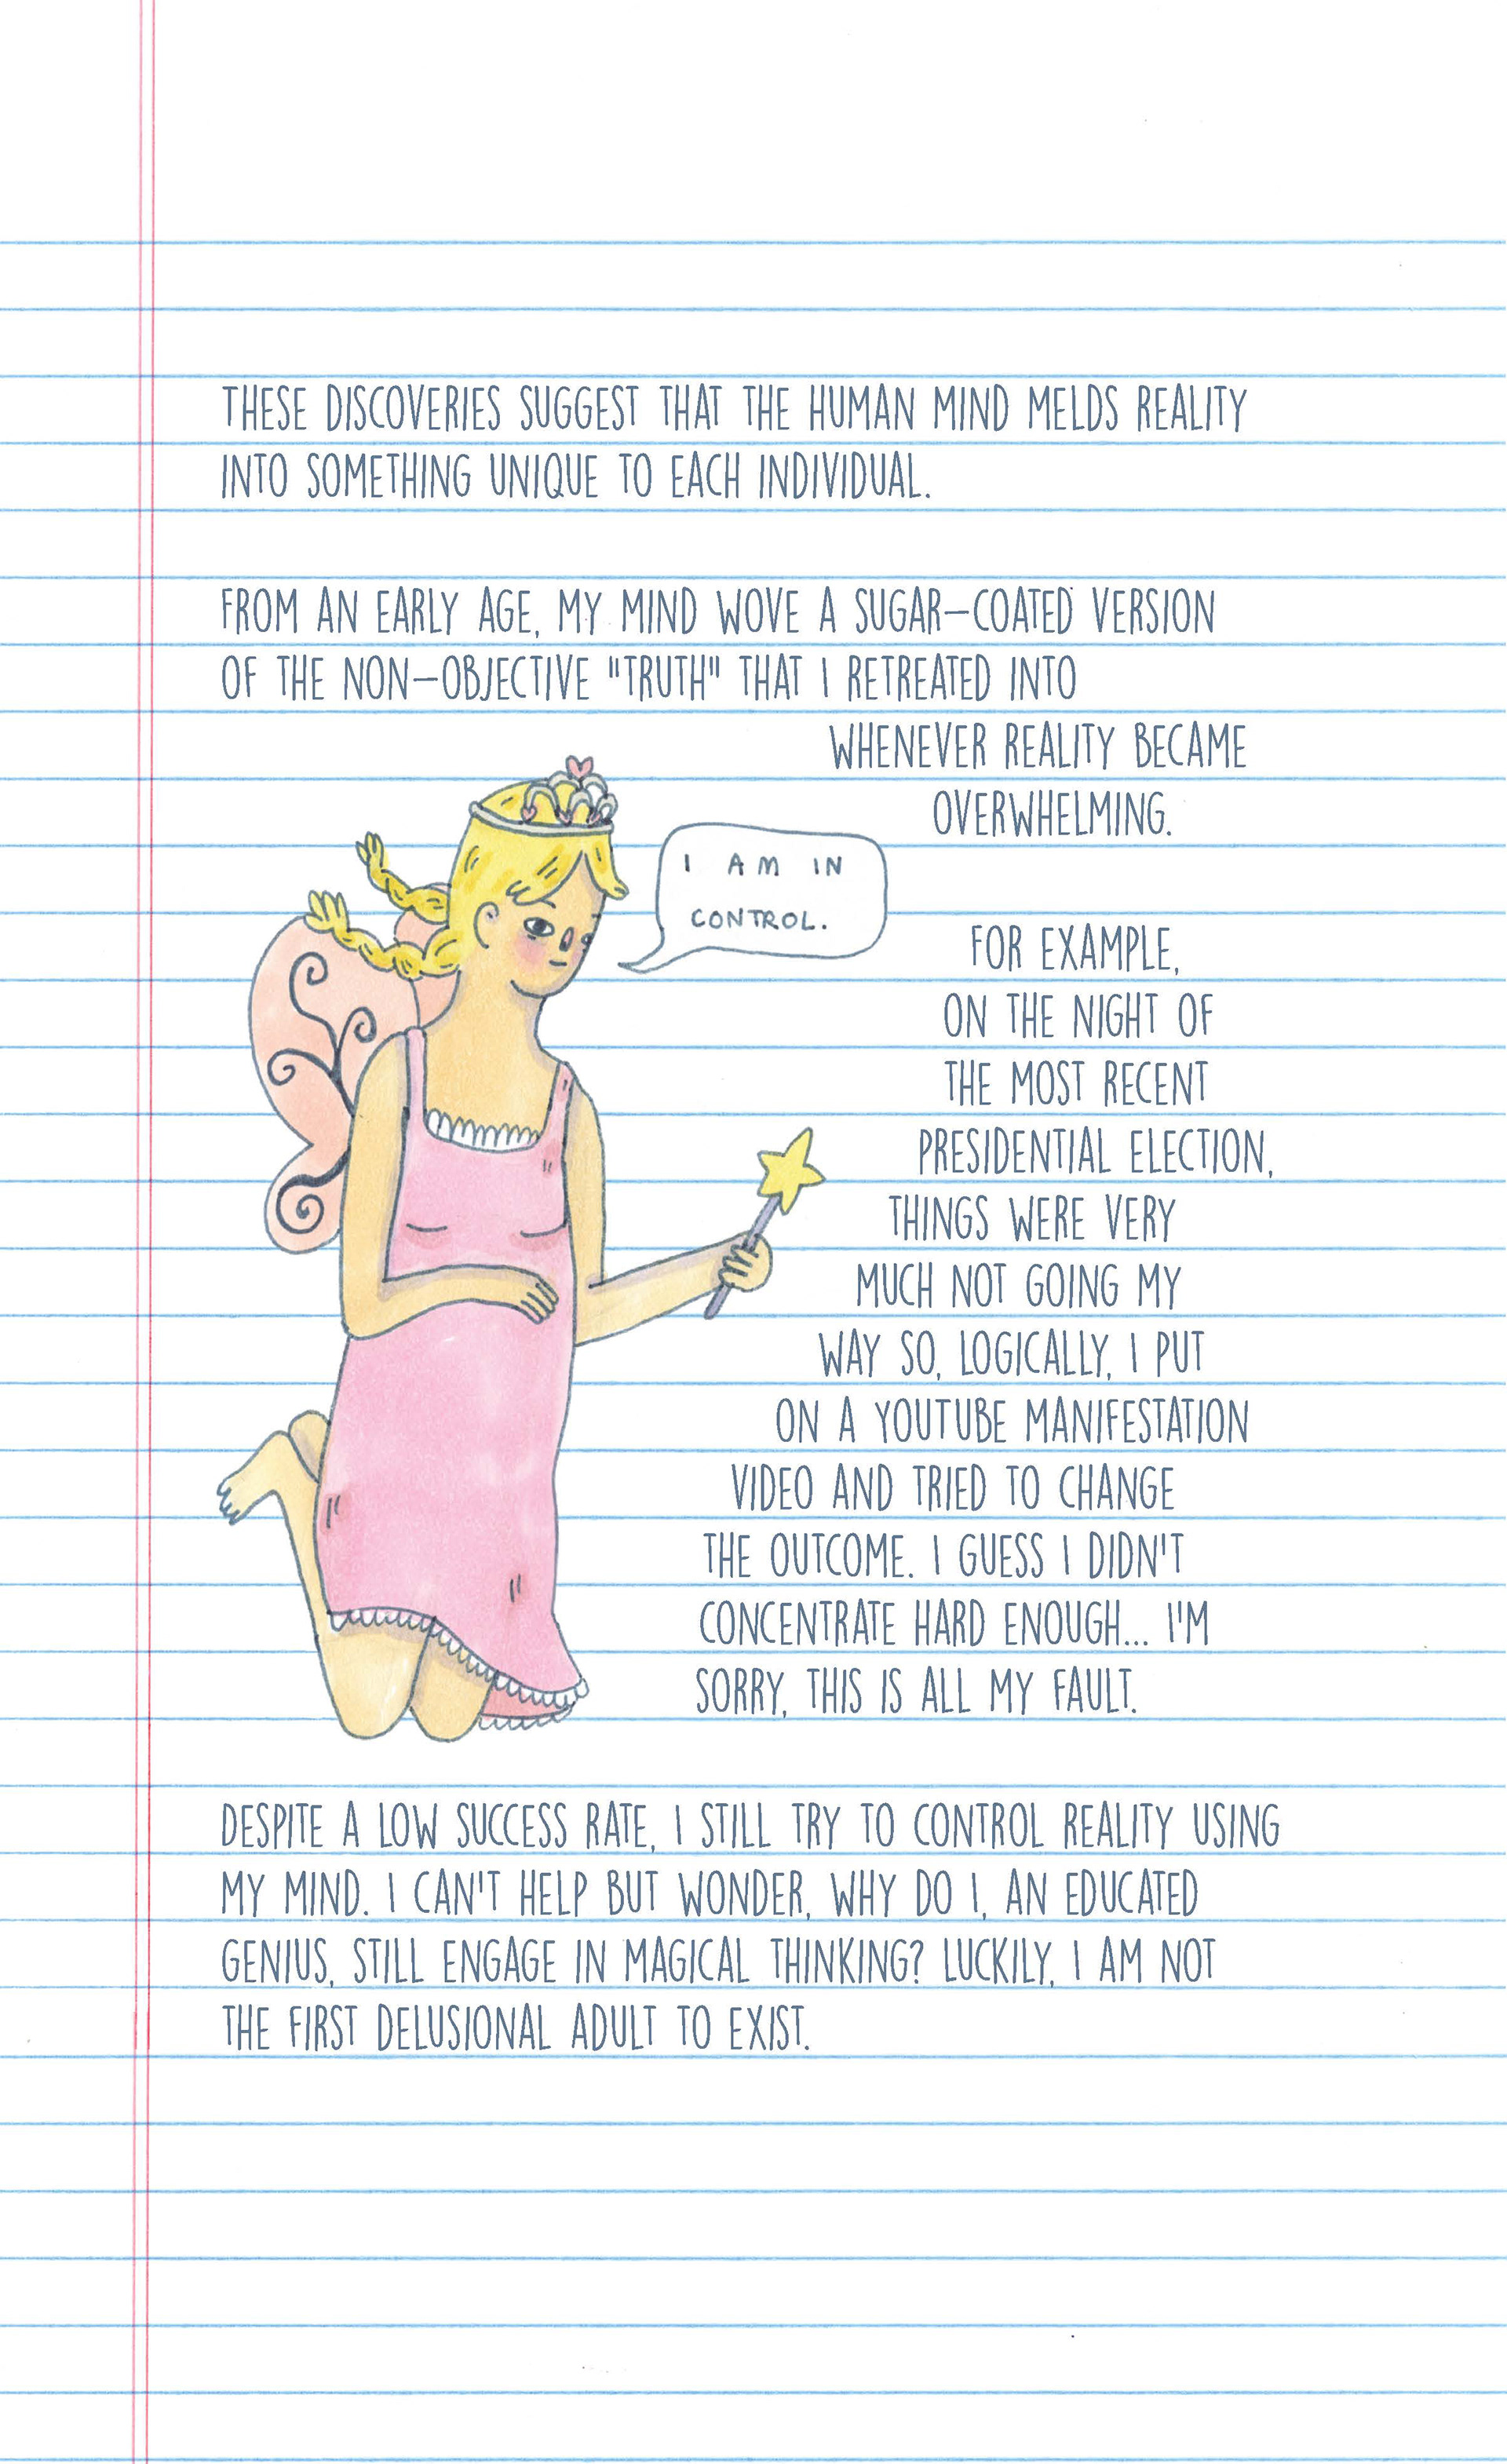 THESE DISCOVERIES SUGGEST THAT THE HUMAN MIND MELDS REALITY
INTO SOMETHING UNIQUE TO EACH INDIVIDUAL.
FROM AN EARLY AGE, MY MIND WOVE A SUGAR-COATED VERSION
OF THE NON-OBJECTIVE "TRUTH" THAT I RETREATED INTO
WHENEVER REALITY BECAME
OVERWHELMING.
I AM IN
CONTROL.
FOR EXAMPLE,
ON THE NIGHT OF
THE MOST RECENT
PRESIDENTIAL ELECTION,
THINGS WERE VERY
MUCH NOT GOING MY
WAY SO, LOGICALLY, I PUT
ON A YOUTUBE MANIFESTATION
VIDEO AND TRIED TO CHANGE
THE OUTCOME. I GUESS I DIDN'T
CONCENTRATE HARD ENOUGH... I'M
SORRY, THIS IS ALL MY FAULT.
DESPITE A LOW SUCCESS RATE, I STILL TRY TO CONTROL REALITY USING
MY MIND. I CAN'T HELP BUT WONDER, WHY DO I, AN EDUCATED
GENIUS, STILL ENGAGE IN MAGICAL THINKING? LUCKILY, I AM NOT
THE FIRST DELUSIONAL ADULT TO EXIST.